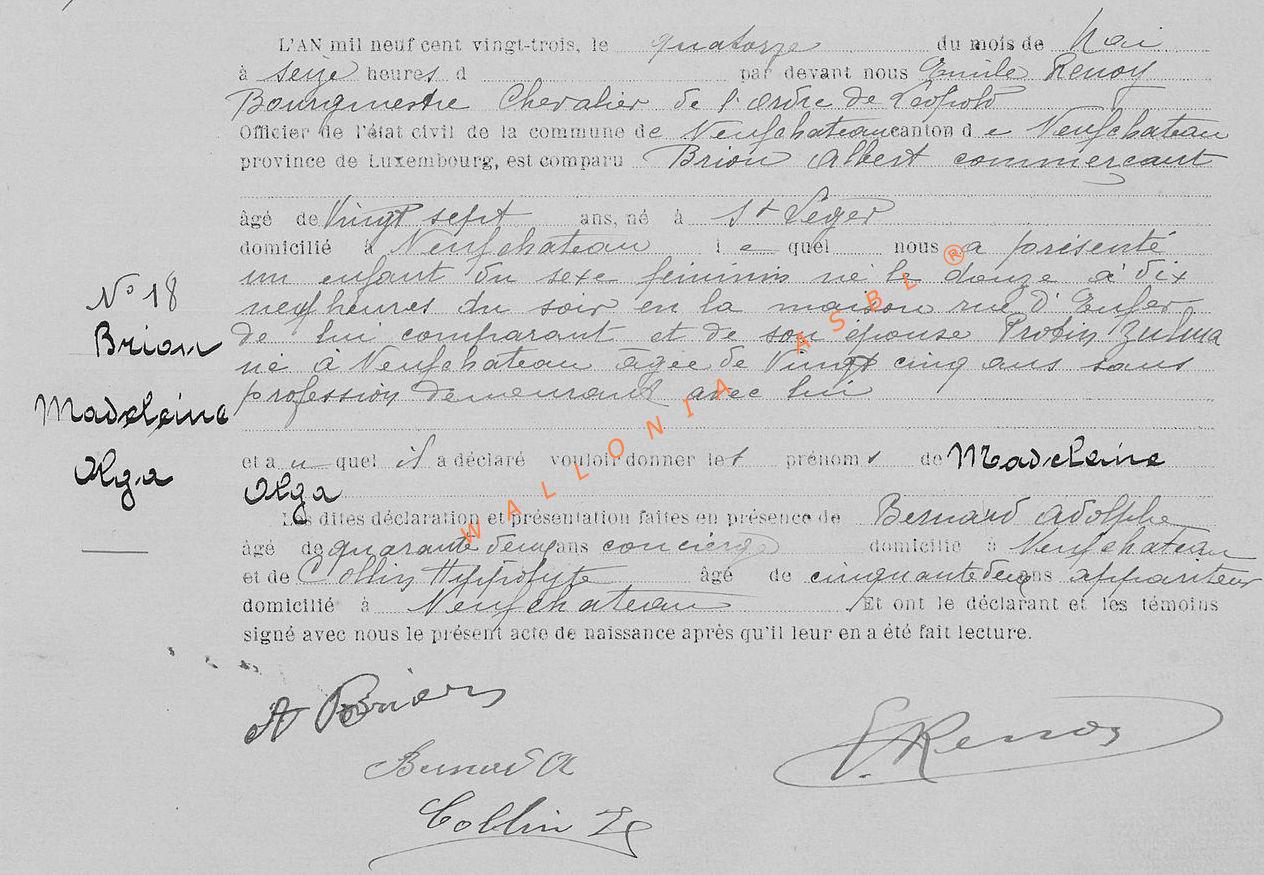 L'AN mil neuf cent vingt-trois, le quatorze du mois de Mai
à seize heures d par devant nous Emile Renoy
Bourgmestre Chevalier de l'ordre de Léopold
Officier de l'état civil de la commune de Neufchateau canton d e Neufchateau
province de Luxembourg, est comparu Brion Albert commerçant
âgé de Vingt sept ans, né à St Léger
domicilié à Neufchateau l e quel nous a présenté
un enfant du sexe féminin né le douze à dix
N° 18
neuf heures du soir en la maison rue d'Enfer
Brion
de lui comparant et de son épouse Probin Zulma
né à Neufchateau âgée de Vingt cinq ans sans
Madeleine
profession demeurant avec lui
Olga
et a u quel il a déclaré vouloir donner les prénoms de Madeleine
Olga
Les dites déclaration et présentation faites en présence de Bernard Adolphe
âgé de quarante deux ans concierge domicilié à Neufchateau
et de Collin Hyppolyte âgé de cinquante deux ans appariteur
domicilié à Neufchateau Et ont le déclarant et les témoins
signé avec nous le présent acte de naissance après qu'il leur en a été fait lecture.
A Brion
E. Renoy
Bernard A
Collin
WALLONIA ASBL ®